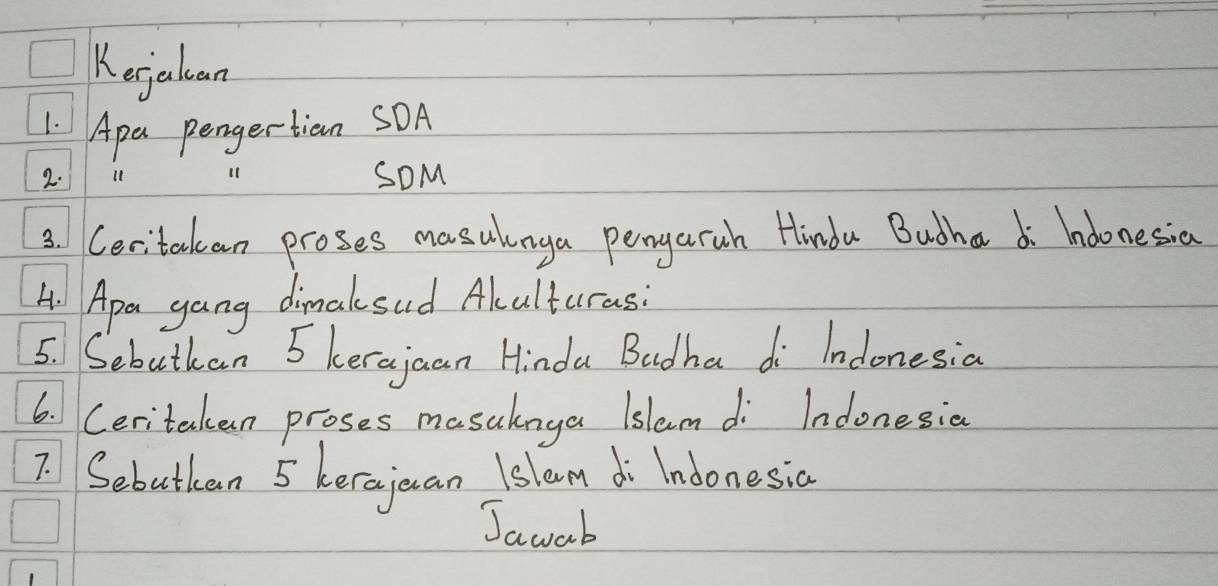 Kerjakan
1. Apa pengertian SDA
2. " " SDM
3. Ceritakan proses masuknya pengaruh Hindu Budha di Indonesia
4. Apa yang dimaksud Akulturasi
5. Sebutkan 5 kerajaan Hindu Budha di Indonesia
6. Ceritakan proses masuknya Islam di Indonesia
7. Sebutkan 5 kerajaan Islam di Indonesia
Jawab
1